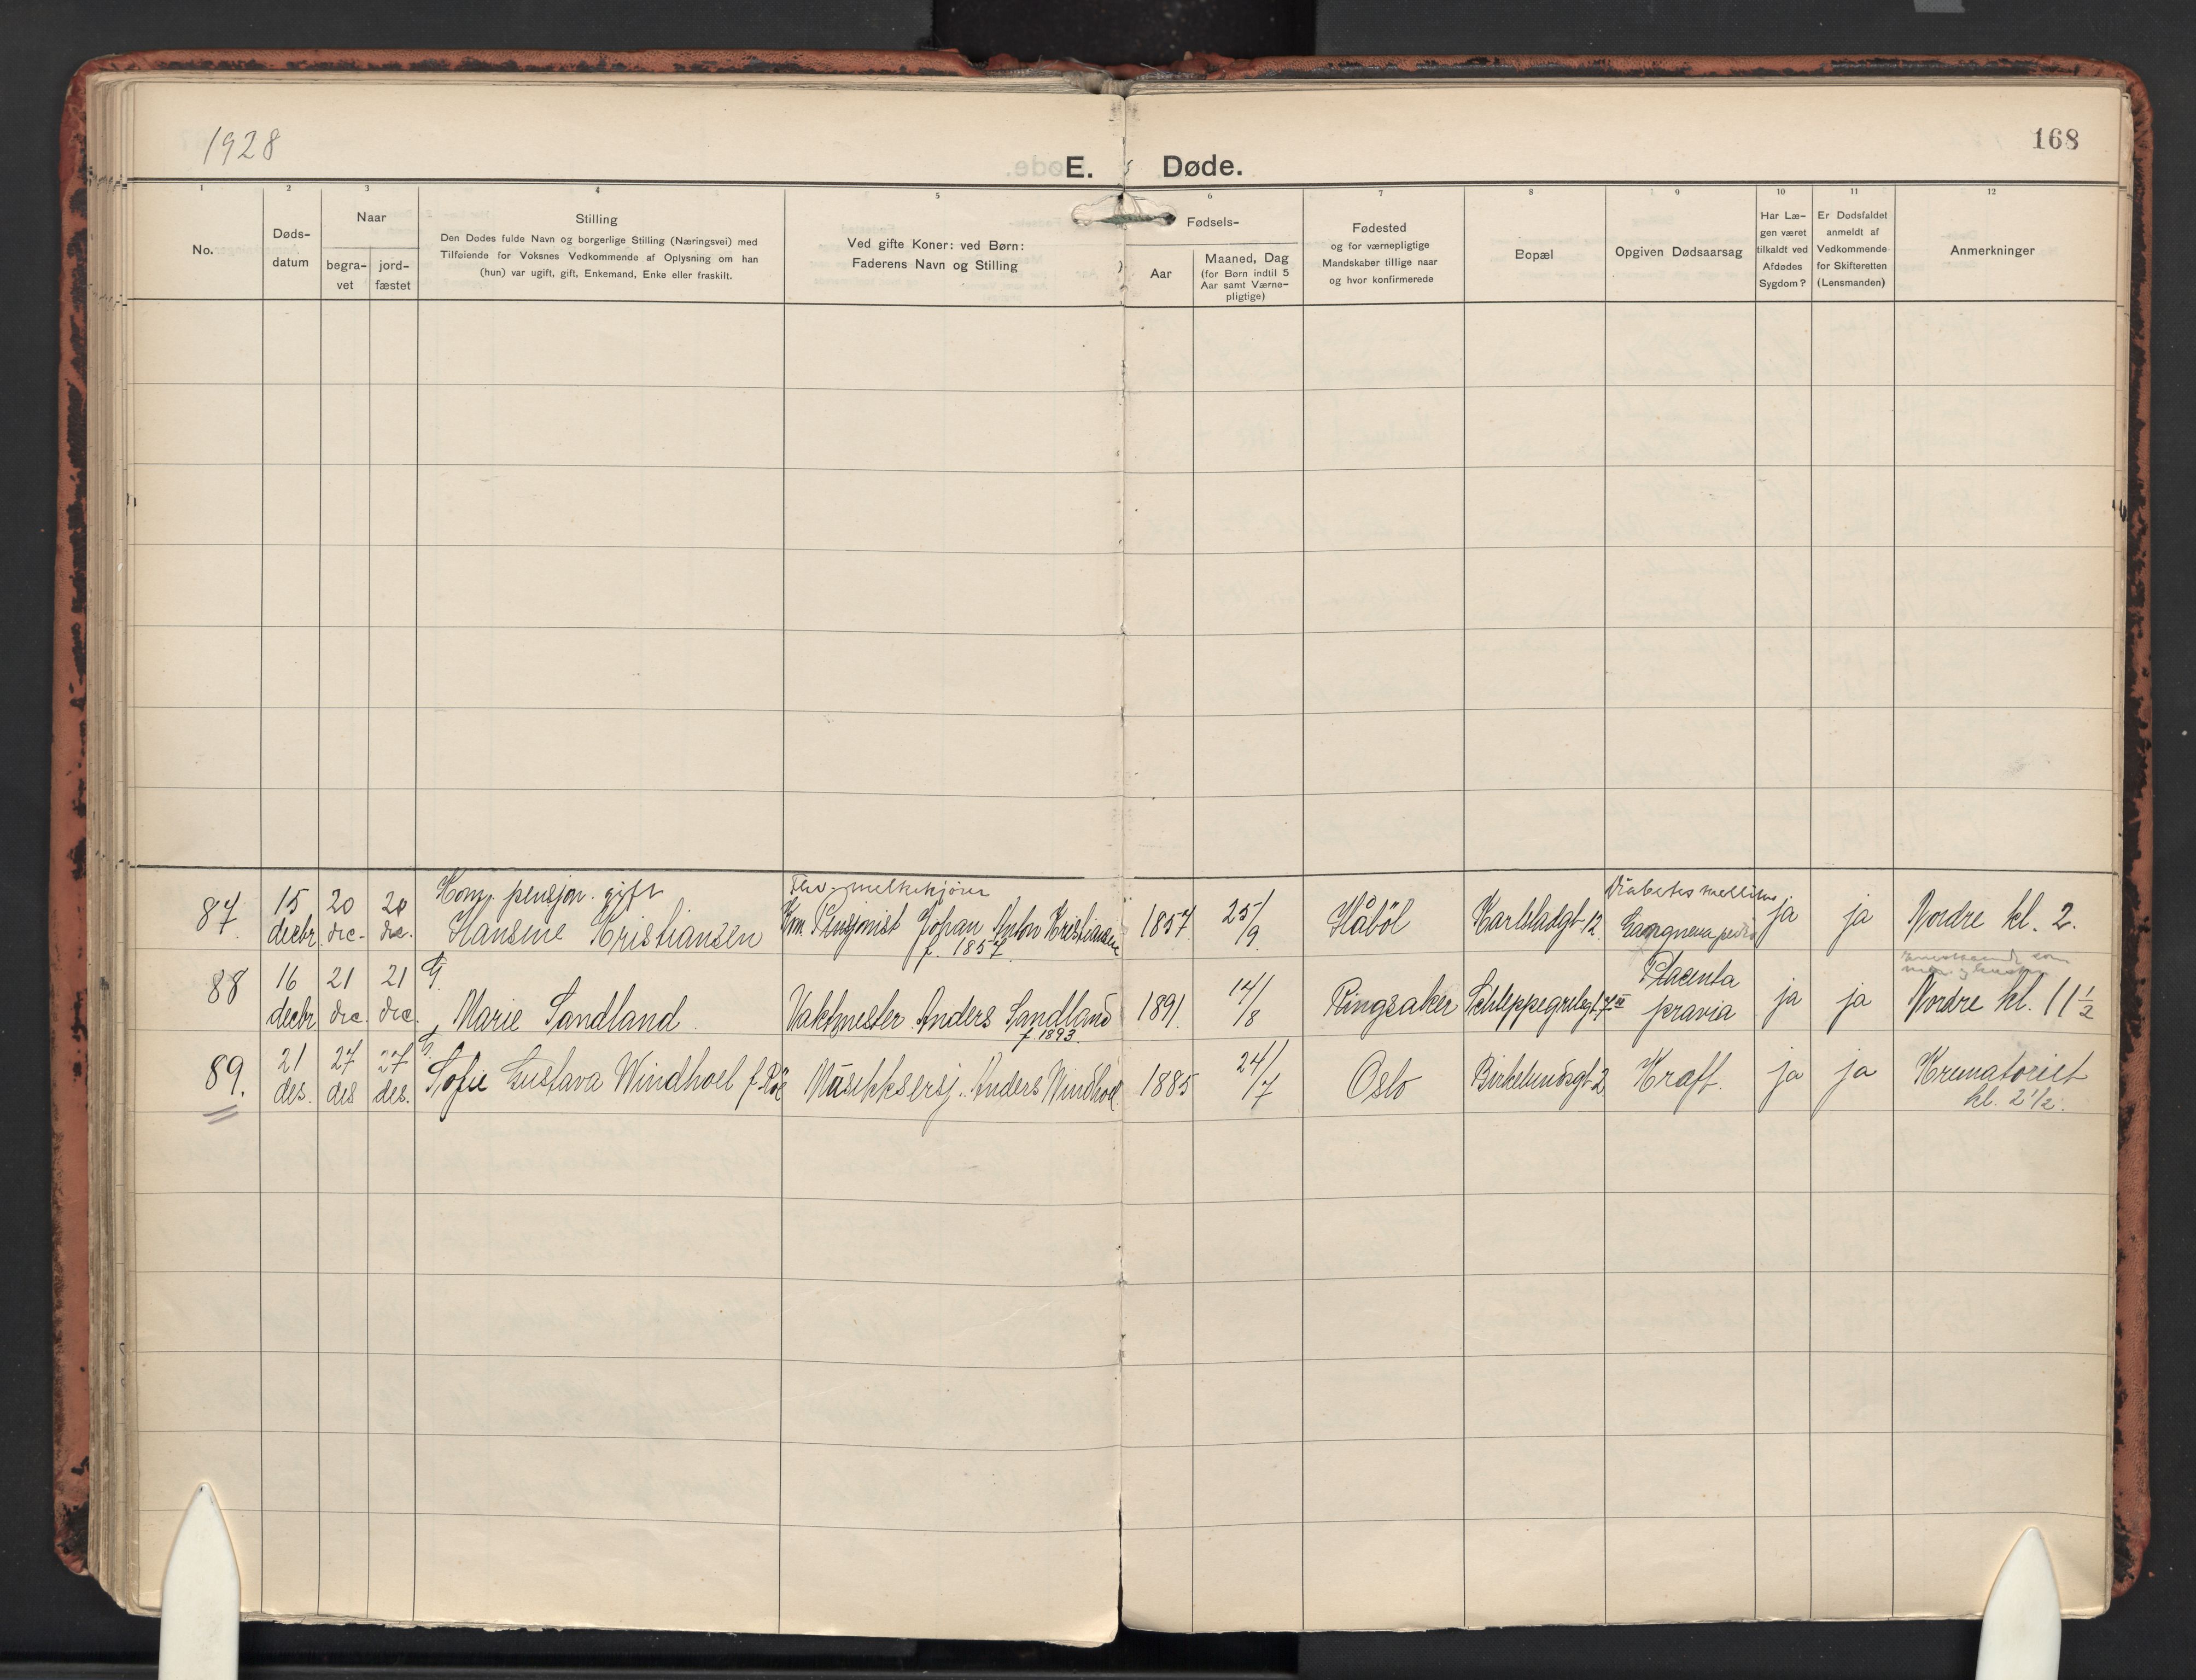 1928
168
E. Døde.
1 2 3 4 5 6 7 8 9 10 11 12
No.
Døds-
datum
Naar
begra-
vet
jord-
fæstet
Stilling
Den Dødes fulde Navn og borgerlige Stilling (Næringsvei) med
Tilføiende for Voksnes Vedkommende af Oplysning om han
(hun) var ugift, gift, Enkemand, Enke eller fraskilt.
Ved gifte Koner: ved Børn:
Faderens Navn og Stilling
Fødsels-
Aar
Maaned, Dag
(for Børn indtil 5
Aar samt Værne-
pligtige)
Fødested
og for værnepligtige
Mandskaber tillige naar
og hvor konfirmerede
Bopæl
Opgiven Dødsaarsag
Har Læ-
gen været
tilkaldt ved
Afdødes
Sygdom?
Er Dødsfaldet
anmeldt af
Vedkommende
for Skifteretten
(Lensmanden)
Anmerkninger
87. 15 decbr. 20 dec. 20 dec.
Kom. pensjon. gift
Hansine Kristiansen
melkekjører
Kom. Pensjonist Johan Anton Kristiansen
f. 1857.
1857 25/9. Håböl Karlstadgt 12.
Diabetes mellitus
ja ja Nordre kl. 2.
88 16 decbr 21 dec. 21 dec.
G.
Marie Sandland.
Vaktmester Anders Sandland
f. 1893.
1891. 14/8 Ringsaker Schleppegrelsgt 7 III
Placenta
prævia
ja ja Nordre kl. 11 1/2
89. 21 des. 27 des 27 des.
G.
Sofie Gustava Windhoel f. Röe
Musikksersj. Anders Windhoel
1885 24/7 Oslo Birkelundsgt 2. Kræft. ja ja Krematoriet
kl. 2 1/2.